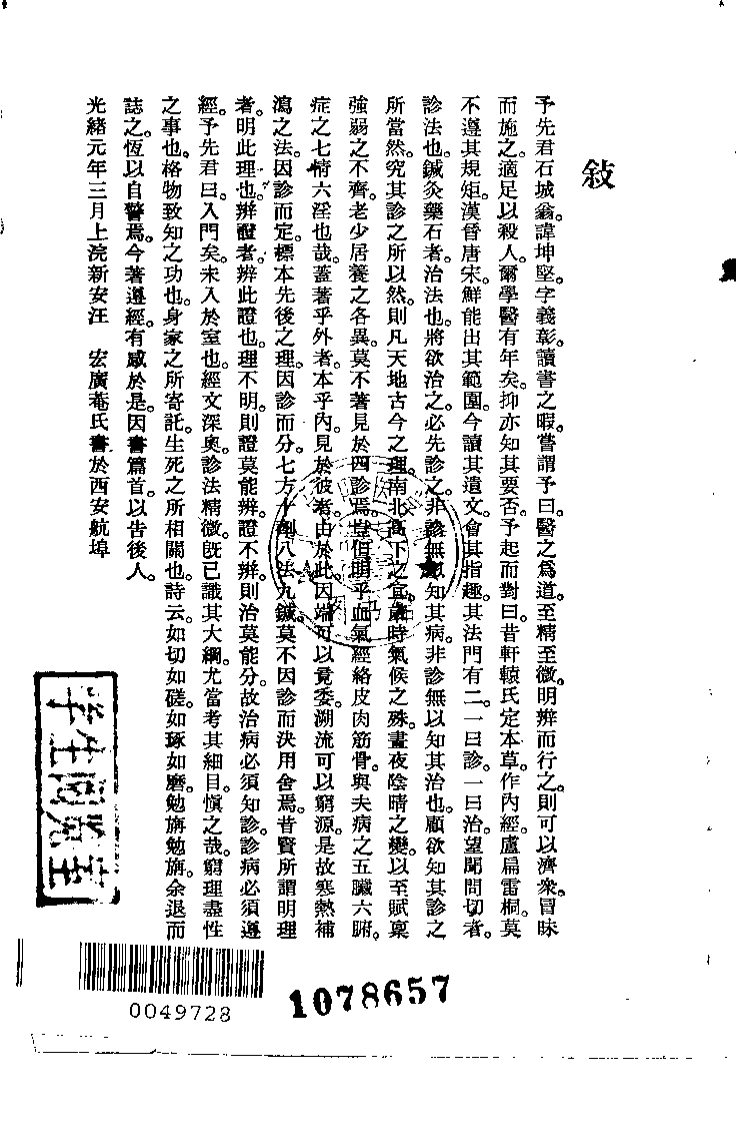 敍
予先君石城翁。諱坤堅。字義彰。讀書之暇。嘗謂予曰。醫之爲道。至精至微。明辨而行之。則可以濟衆。冒昧
而施之。適足以殺人。爾學醫有年矣。抑亦知其要否。予起而對曰。昔軒轅氏定本草。作內經。盧扁雷桐。莫
不遵其規矩。漢晉唐宋。鮮能出其範圍。今讀其遺文。會其指趣。其法門有二。一曰診。一曰治。望聞問切者。
診法也。鍼灸藥石者。治法也。將欲治之。必先診之。非診無以知其病。非診無以知其治也。顧欲知其診之
所當然。究其診之所以然。則凡天地古今之理。南北高下之宜。歲時氣候之殊。晝夜陰晴之變。以至賦稟
強弱之不齊。老少居養之各異。莫不著見於四診焉。豈但明乎血氣經絡皮肉筋骨。與夫病之五臟六腑。
症之七情六淫也哉。蓋著乎外者。本乎內。見於彼者。由於此。因端可以竟委。溯流可以窮源。是故寒熱補
瀉之法。因診而定。標本先後之理。因診而分。七方十劑。八法九鍼。莫不因診而決用舍焉。昔賢所謂明理
者。明此理也。辨證者。辨此證也。理不明。則證莫能辨。證不辨。則治莫能分。故治病必須知診。診病必須遵
經。予先君曰。入門矣。未入於室也。經文深奧。診法精微。旣已識其大綱。尤當考其細目。愼之哉。窮理盡性
之事也。格物致知之功也。身家之所寄託。生死之所相關也。詩云。如切如磋。如琢如磨。勉旃勉旃。余退而
誌之。恆以自警焉。今著遵經。有感於是。因書篇首。以告後人。
光緒元年三月上浣新安汪 宏廣菴氏書於西安航埠
學生閱覽室
0049728
1078657